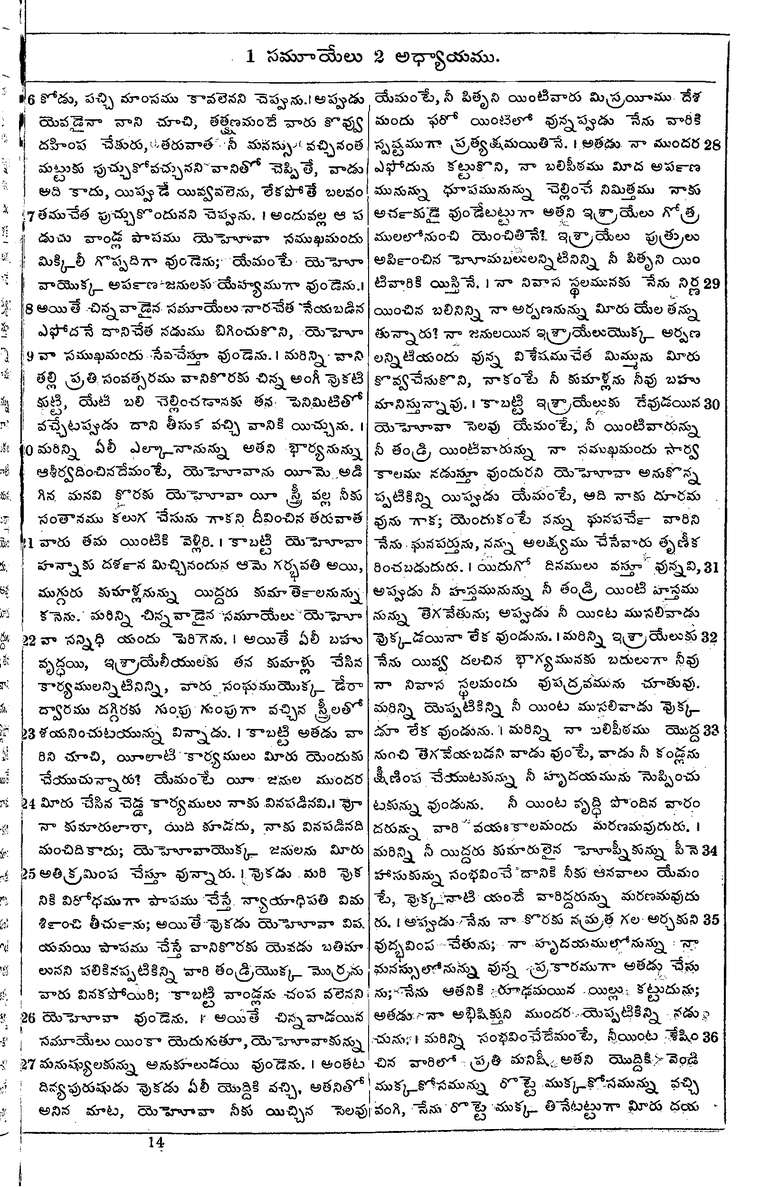 1 సమూయేలు 2 అధ్యాయము.
6 కోడు, పచ్చి మాంసము కావలెనని చెప్పును. । అప్పుడు
యెవడైనా వాని చూచి, తత్క్షణమందే వారు కొవ్వు
దహింప చేతురు, తరువాత నీ మనస్సు వచ్చినంత
మట్టుకు పుచ్చుకోవచ్చునని వానితో చెప్పితే, వాడు
అది కాదు, యిప్పుడే యివ్వవలెను, లేకపోతే బలవం
7 తముచేత పుచ్చుకొందునని చెప్పును. । అందువల్ల ఆ ప
డుచు వాండ్ల పాపము యెహోవా సముఖమందు
మిక్కిలీ గొప్పదిగా వుండెను; యేమంటే యెహో
వాయొక్క అర్పణ జనులకు యేహ్యముగా వుండెను. ।
8 అయితే చిన్నవాడైన సమూయేలు నారచేత నేయబడిన
ఎఫోదనే దానిచేత నడుము బిగించుకొని, యెహో
9 వా సముఖమందు సేవచేస్తూ వుండెను. । మరిన్ని వాని
తల్లి ప్రతి సంవత్సరము వానికొరకు చిన్న అంగీ వొకటి
కుట్టి, యేటి బలి చెల్లించడానకు తన పెనిమిటితో
వచ్చేటప్పుడు దాని తీసుక వచ్చి వానికి యిచ్చును. ।
0 మరిన్ని ఏలీ ఎల్కానానున్ను అతని భార్యనున్ను
ఆశీర్వదించినదేమంటే, యెహోవాను యీమె అడి
గిన మనవి కొరకు యెహోవా యీ స్త్రీ వల్ల నీకు
సంతానము కలుగ చేసును గాకని దీవించిన తరువాత
21 వారు తమ యింటికి వెళ్లిరి. । కాబట్టి యెహోవా
హన్నాకు దర్శన మిచ్చినందున ఆమె గర్భవతి అయి,
ముగ్గురు కుమాళ్లనున్ను యిద్దరు కుమార్తెలనున్ను
కనెను. మరిన్ని చిన్నవాడైన సమూయేలు యెహో
22 వా సన్నిధి యందు పెరిగెను. । అయితే ఏలీ బహు
వృద్ధయి, ఇశ్రాయేలీయులకు తన కుమాళ్లు చేసిన
కార్యములన్నిటినిన్ని, వారు సంఘముయొక్క డేరా
ద్వారము దగ్గిరకు గుంపు గుంపుగా వచ్చిన స్త్రీలతో
23 శయనించుటయున్ను విన్నాడు. । కాబట్టి అతడు వా
రిని చూచి, యీలాటి కార్యములు మీరు యెందుకు
చేయుచున్నారు? యేమంటే యీ జనుల ముందర
24 మీరు చేసిన చెడ్డ కార్యములు నాకు వినపడినవి. । వో
నా కుమారులారా, యిది కూడదు, నాకు వినపడినది
మంచిదికాదు; యెహోవాయొక్క జనులను మీరు
25 అతిక్రమింప చేస్తూ వున్నారు. । వొకడు మరి వొక
నికి విరోధముగా పాపము చేస్తే న్యాయాధిపతి విమ
ర్శించి తీర్చును; అయితే వొకడు యెహోవా విష
యమయి పాపము చేస్తే వానికొరకు యెవడు బతిమా
లునని పలికినప్పటికిన్ని వారి తండ్రియొక్క మొర్రను
వారు వినకపోయిరి; కాబట్టి వాండ్లను చంప వలెనని
26 యెహోవా వుండెను. । అయితే చిన్నవాడయిన
సమూయేలు యింకా యెదుగుతూ, యెహోవాకున్ను
27 మనుష్యులకున్ను అనుకూలుడయి వుండెను. । అంతట
దివ్యపురుషుడు వొకడు ఏలీ యొద్దికి వచ్చి, అతనితో
అనిన మాట, యెహోవా నీకు యిచ్చిన సెలవు
యేమంటే, నీ పితృని యింటివారు మిస్రయీము దేశ
మందు ఫరో యింటిలో వున్నప్పుడు నేను వారికి
స్పష్టముగా ప్రత్యక్షమయితినే. । అతడు నా ముందర 28
ఎఫోదును కట్టుకొని, నా బలిపీఠము మీద అర్పణ
మునున్ను ధూపమునున్ను చెల్లించే నిమిత్తము నాకు
అర్చకుడై వుండేటట్టుగా అతని ఇశ్రాయేలు గోత్ర
ములలోనుంచి యెంచితినే? ఇశ్రాయేలు పుత్రులు
అర్పించిన హోమబలులన్నిటినిన్ని నీ పితృని యిం
టివారికి యిస్తినే. । నా నివాస స్థలమునకు నేను నిర్ణ 29
యించిన బలినిన్ని నా అర్పణనున్ను మీరు యేల తన్ను
తున్నారు? నా జనులయిన ఇశ్రాయేలుయొక్క అర్పణ
లన్నిటియందు వున్న విశేషముచేత మిమ్మును మీరు
కొవ్వచేసుకొని, నాకంటే నీ కుమాళ్లను నీవు బహు
మానిస్తున్నావు. । కాబట్టి ఇశ్రాయేలుకు దేవుడయిన 30
యెహోవా సెలవు యేమంటే, నీ యింటివారున్ను
నీ తండ్రి యింటివారున్ను నా సముఖమందు సార్వ
కాలము నడుస్తూ వుందురని యెహోవా అనుకొన్న
ప్పటికిన్ని యిప్పుడు యేమంటే, ఆది నాకు దూరమ
వును గాక; యెందుకంటే నన్ను ఘనపర్చే వారిని
నేను ఘనపర్తును, నన్ను అలక్ష్యము చేసేవారు తృణీక
రించబడుదురు. । యిదుగో దినములు వస్తూ వున్నవి, 31
అప్పుడు నీ హస్తమునున్ను నీ తండ్రి యింటి హస్తము
నున్ను తెగవేతును; అప్పుడు నీ యింట ముసలివాడు
వొక్కడయినా లేక వుండును. । మరిన్ని ఇశ్రాయేలుకు 32
నేను యివ్వ దలచిన భాగ్యమునకు బదులుగా నీవు
నా నివాస స్థలమందు వుపద్రవమును చూతువు.
మరిన్ని యెప్పటికిన్ని నీ యింట ముసలివాడు వొక్క
డూ లేక వుండును. । మరిన్ని నా బలిపీఠము యొద్ద 33
నుంచి తెగవేయబడని వాడు వుంటే, వాడు నీ కండ్లను
క్షీణింప చేయుటకున్ను నీ హృదయమును నొప్పించు
టకున్ను వుండును. నీ యింట వృద్ధి పొందిన వారం
దరున్ను వారి వయఃకాలమందు మరణమవుదురు. ।
మరిన్ని నీ యిద్దరు కుమారులైన హోఫ్నీకున్ను పీనె 34
హాసుకున్ను సంభవించే దానికి నీకు ఆనవాలు యేమం
టే, వొక్కనాటి యందే వారిద్దరున్ను మరణమవుదు
రు. । అప్పుడు నేను నా కొరకు నమ్రత గల అర్చకుని 35
వుద్భవింప చేతును; నా హృదయములోనున్ను నా
మనస్సులోనున్ను వున్న ప్రకారముగా అతడు చేసు
ను; నేను ఆతనికి రూఢమయిన యిల్లు కట్టుదును;
అతడు నా అభిషిక్తుని ముందర యెప్పటికిన్ని నడు
చును. । మరిన్ని సంభవించేదేమంటే, నీయింట శేషిం 36
చిన వారిలో ప్రతి మనిషీ అతని యొద్దికి వెండి
ముక్కకోసమున్ను రొట్టె ముక్కకోసమున్ను వచ్చి
వంగి, నేను రొట్టె ముక్క తినేటట్టుగా మీరు దయ
14